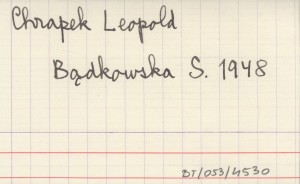 Chrapek Leopold
Bądkowska S. 1948
BT/053/4530